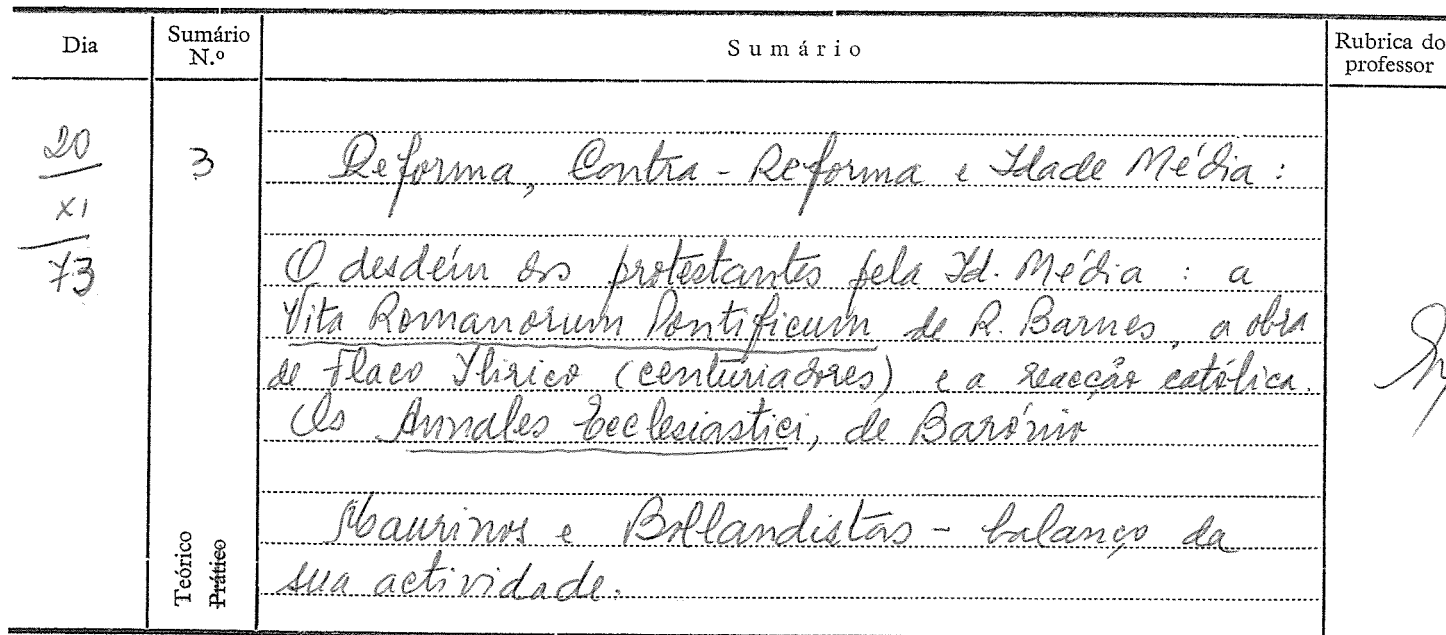 Dia
Sumário N.º
Sumário
Rubrica do professor
20
XI
73
3
Teórico
Prático
Reforma, Contra-Reforma e Idade Média:
O desdém dos protestantes pela Id. Média: a
Vita Romanorum Pontificum de R. Barnes, a obra
de Flaco Ilírico (centuriadores) e a reacção católica.
Os Annales Ecclesiastici, de Barónio
Maurinos e Bollandistas - balanço da
sua actividade.